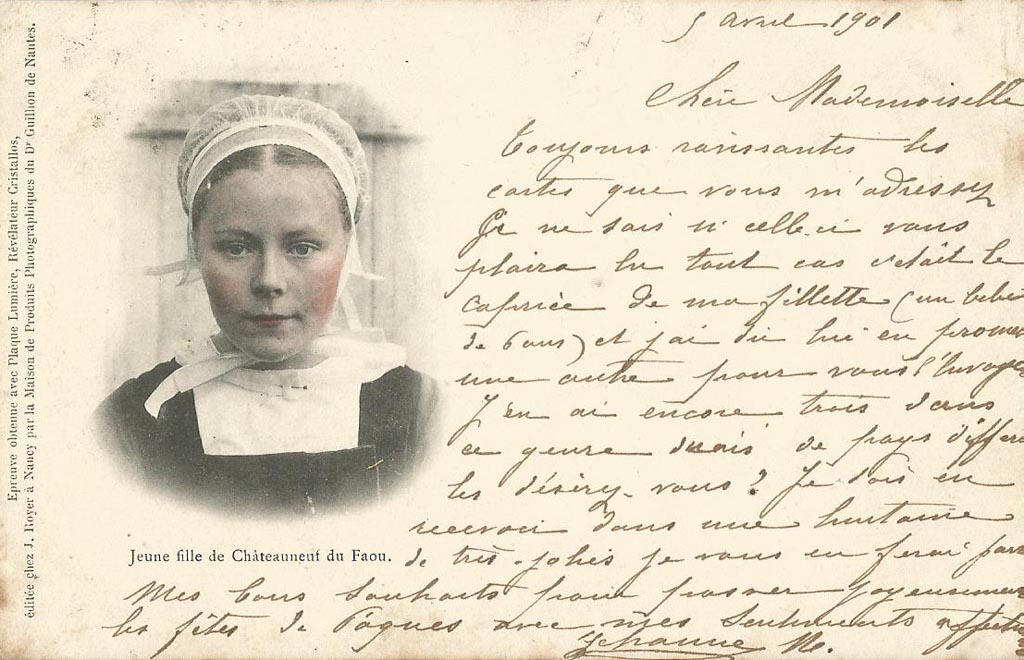 5 Avril 1901
Chère Mademoiselle
Toujours ravissantes les
cartes que vous m'adressez
Je ne sais si celle-ci vous
plaira en tout cas c'était le
caprice de ma fillette (un bébé
de 6 ans) et j'ai dû lui en promer
une autre pour vous l'Envoyer
J'en ai encore trois dans
ce genre mais de pays différe
les désirez-vous? Je dois en
recevoir dans une huitaine
de très-jolies je vous en ferai par
Mes bons souhaits pour passer joyeusemen
les fêtes de Pâques avec mes sentiments affectu
Jehanne M.
Jeune fille de Châteauneuf du Faou.
Epreuve obtenue avec Plaque Lumière, Révélateur Cristallos,
éditée chez J. Royer à Nancy par la Maison de Produits Photographiques du Dr Guillon de Nantes.